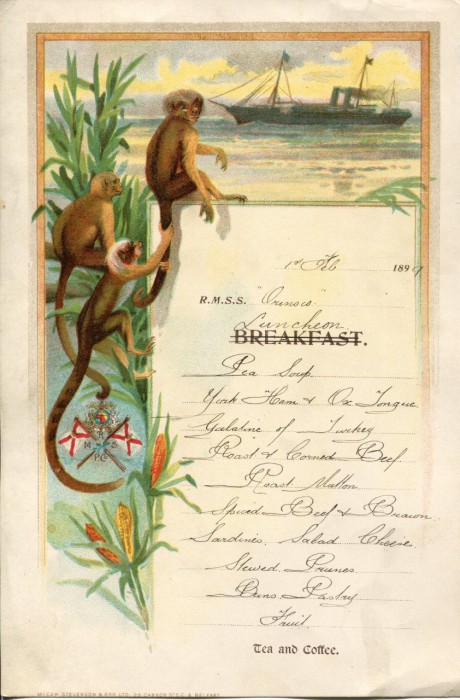 1st Feb 1899
R.M.S.S. "Orinoco"
Luncheon
BREAKFAST.
Pea Soup
York Ham & Ox Tongue
Galatine of Turkey
Roast & Corned Beef
Roast Mutton
Spiced Beef & Brawn
Sardines. Salad Cheese
Stewed Prunes
Buns Pastry
Fruit
Tea and Coffee.
R
M S
P Co
STEVENSON & LTD, CANNON ST E.C. & BELFAST